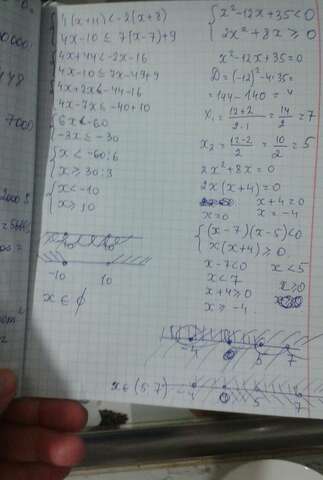 4(x+11)<-2(x+8)
4x-10≤7(x-7)+9
4x+44<-2x-16
4x-10≤7x-49+9
4x+2x<-44-16
4x-7x≤-40+10
6x<-60
-3x≤-30
x<-60:6
x≥30:3
x<-10
x≥10
-10 10
x∈∅
x²-12x+35<0
2x²+8x≥0
x²-12x+35=0
D=(-12)²-4·35=
=144-140=4
x₁=12+2/2·1=14/2=7
x₂=12-2/2=10/2=5
2x²+8x=0
2x(x+4)=0
x+4=0
x=0 x=-4
(x-7)(x-5)<0
x(x+4)≥0
x-7<0 x<5
x<7 x≥0
x+4≥0
x≥-4
-4 0 5 7
x∈(5;7) -4 0 5 7
7000